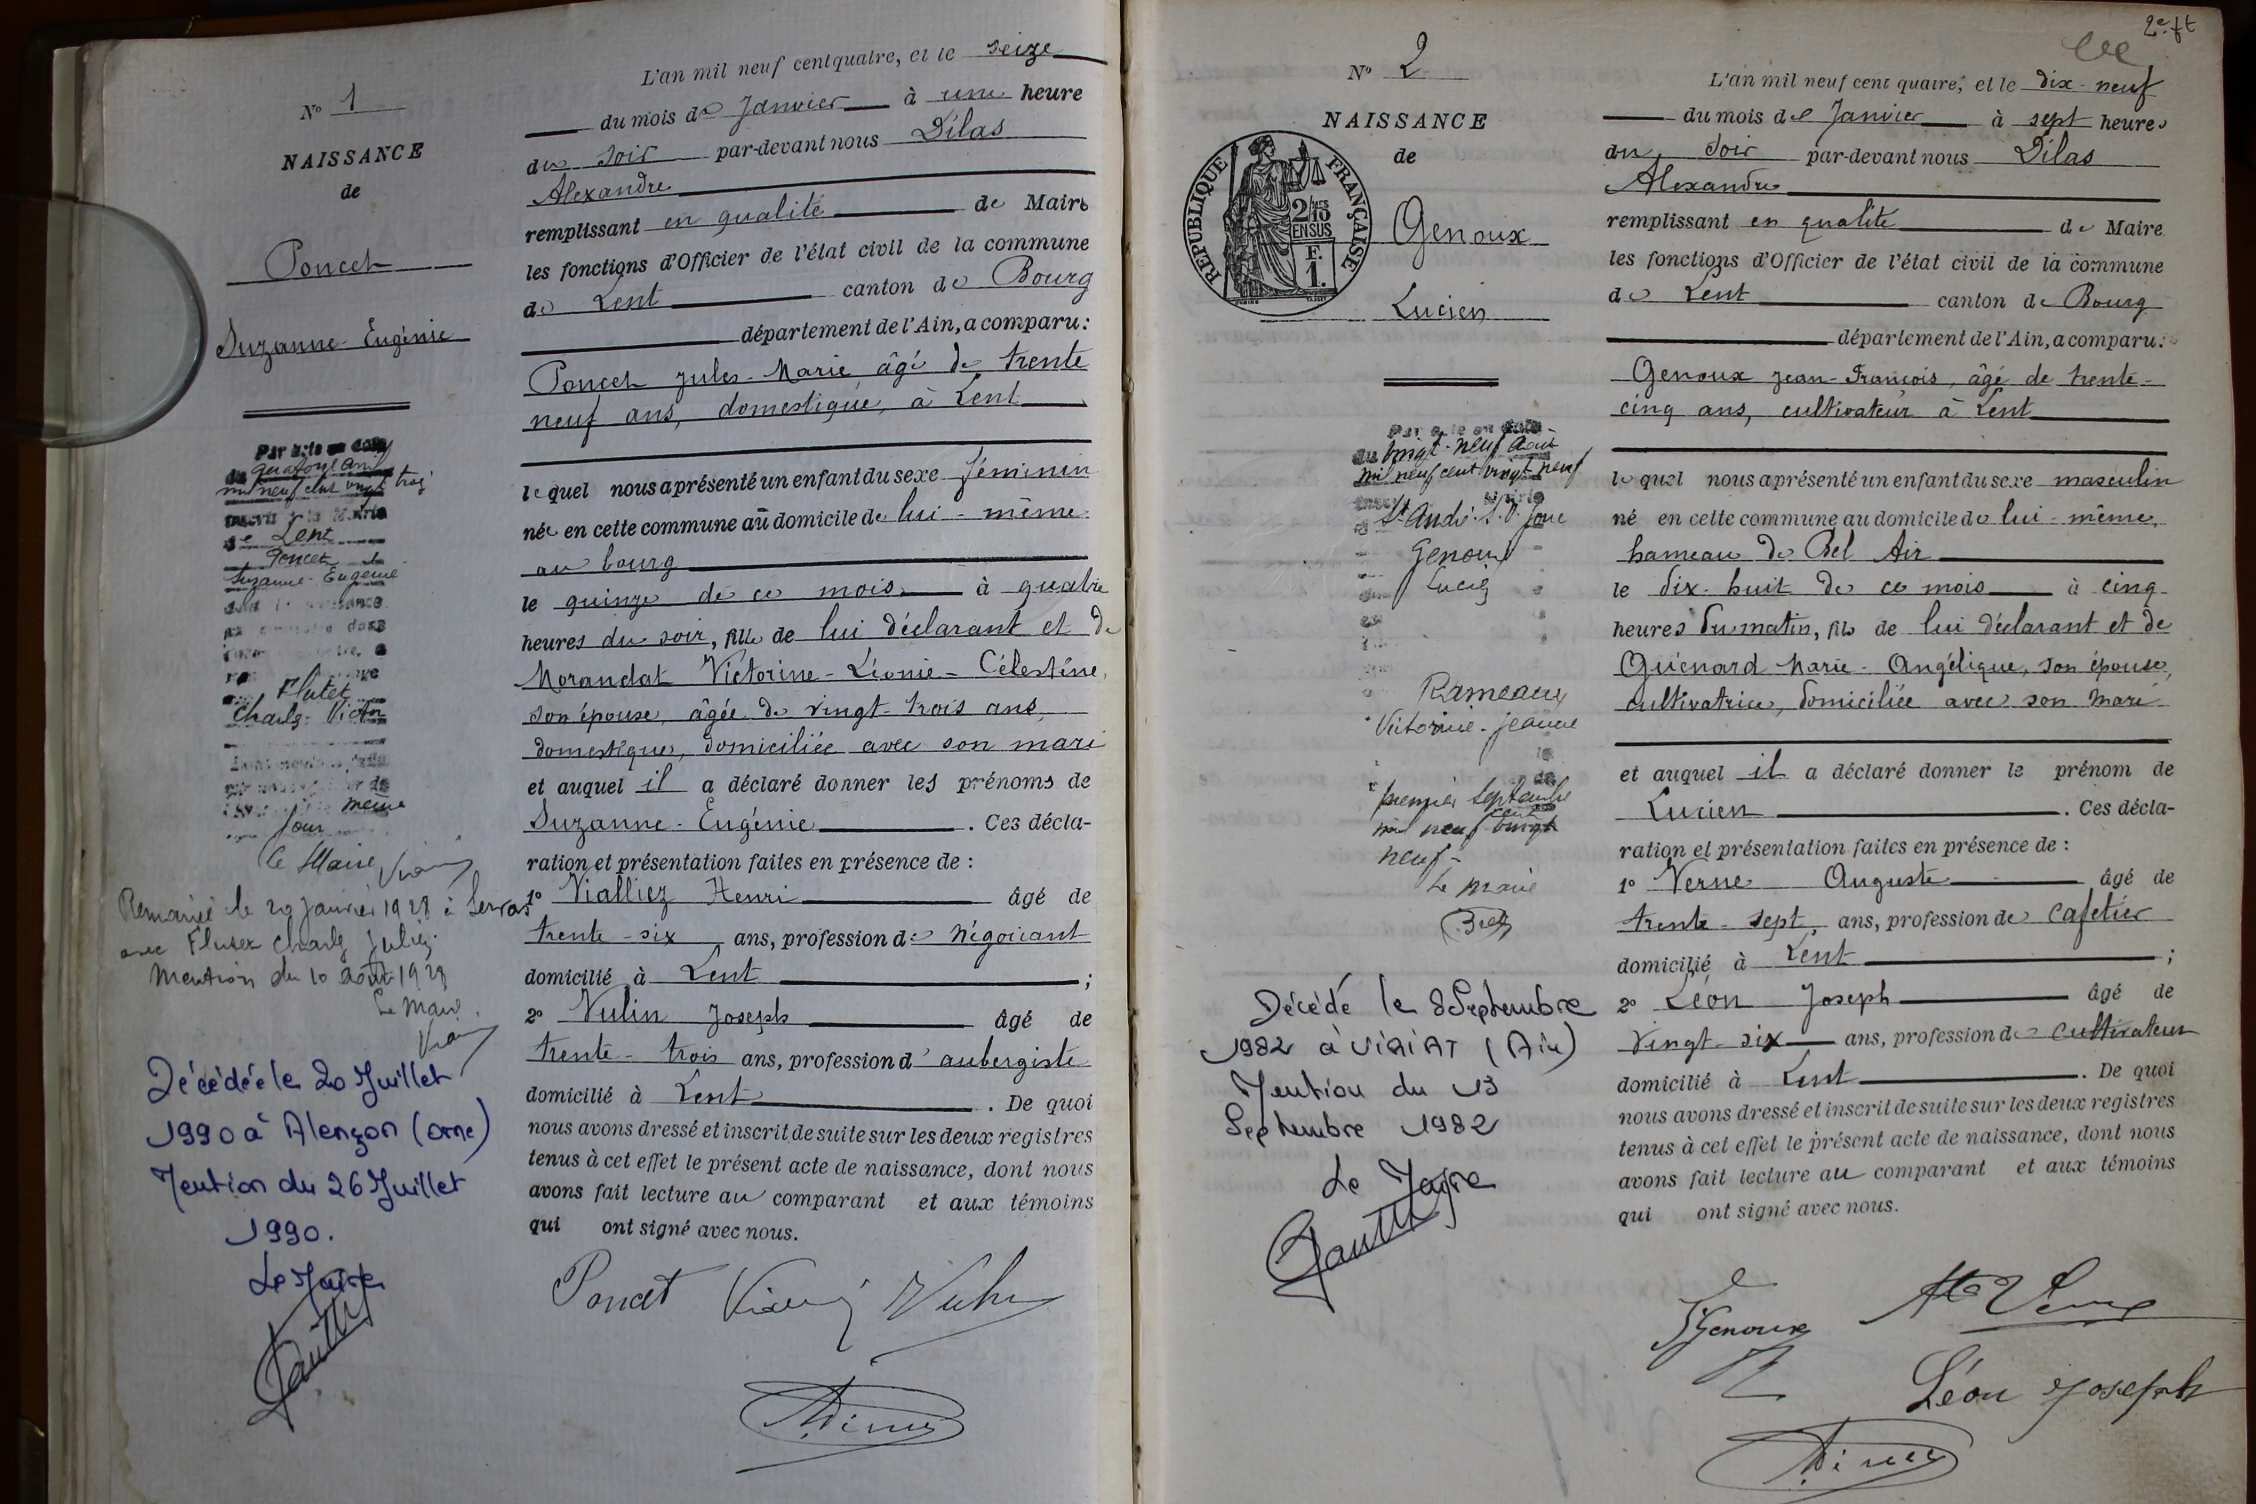 N° 1
NAISSANCE
de
Poncet
Suzanne-Eugénie
Par acte en date
du quatorze avril
mil neuf cent vingt trois
inscrit à la Mairie
de Lent
Poncet
Suzanne-Eugénie
dont la naissance
Flutet
Charles-Victor
même
jour
Le Maire
Remariée le 20 Janvier 1928 à Servas
avec Flutet Charles Julien
Mention du 10 août 1928
Le Maire
Décédée le 20 Juillet
1990 à Alençon (Orne)
Mention du 26 Juillet
1990.
Le Maire
L'an mil neuf cent quatre, et le seize
du mois de Janvier à une heure
du soir par-devant nous Dilas
Alexandre
remplissant en qualité de Maire
les fonctions d'Officier de l'état civil de la commune
de Lent canton de Bourg
département de l'Ain, a comparu:
Poncet Jules-Marie âgé de trente
neuf ans, domestique, à Lent
lequel nous a présenté un enfant du sexe féminin
née en cette commune au domicile de lui-même
au bourg
le quinze de ce mois à quatre
heures du soir, fille de lui déclarant et de
Morandat Victorine-Léonie-Célestine,
son épouse, âgée de vingt-trois ans,
domestique, domiciliée avec son mari
et auquel il a déclaré donner les prénoms de
Suzanne-Eugénie. Ces décla-
ration et présentation faites en présence de :
1° Vialliez Henri âgé de
trente-six ans, profession de négociant
domicilié à Lent ;
2° Vulin Joseph âgé de
trente-trois ans, profession d'aubergiste
domicilié à Lent. De quoi
nous avons dressé et inscrit de suite sur les deux registres
tenus à cet effet le présent acte de naissance, dont nous
avons fait lecture au comparant et aux témoins
qui ont signé avec nous.
Poncet
N° 2
NAISSANCE
de
RÉPUBLIQUE FRANÇAISE
2/10 MES
EN SUS
F.
1.
Genoux
Lucien
Par acte en date
du vingt-neuf août
mil neuf cent vingt-neuf
St André.
Genoux
Lucien
Rameaux
Victorine-Jeanne
le
premier septembre
mil neuf cent vingt
neuf-
Le Maire
Décédé le 8 Septembre
1982 à VIRIAT (Ain)
Mention du 13
Septembre 1982
Le Maire
2e ft
L'an mil neuf cent quatre, et le dix-neuf
du mois de Janvier à sept heures
du soir par-devant nous Dilas
Alexandre
remplissant en qualité de Maire
les fonctions d'Officier de l'état civil de la commune
de Lent canton de Bourg
département de l'Ain, a comparu:
Genoux Jean-François, âgé de trente-
cinq ans, cultivateur à Lent
lequel nous a présenté un enfant du sexe masculin
né en cette commune au domicile de lui-même,
hameau de Bel Air
le dix-huit de ce mois à cinq
heures du matin, fils de lui déclarant et de
Guénard Marie-Angélique, son épouse,
cultivatrice, domiciliée avec son mari
et auquel il a déclaré donner le prénom de
Lucien. Ces décla-
ration et présentation faites en présence de :
1° Verne Auguste âgé de
trente-sept ans, profession de cafetier
domicilié à Lent ;
2° Léon Joseph âgé de
vingt-six ans, profession de cultivateur
domicilié à Lent. De quoi
nous avons dressé et inscrit de suite sur les deux registres
tenus à cet effet le présent acte de naissance, dont nous
avons fait lecture au comparant et aux témoins
qui ont signé avec nous.
Genoux
Verne
Léon Joseph